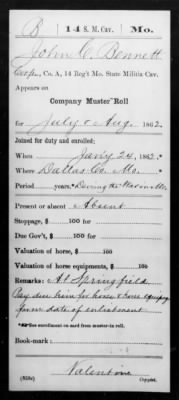 B | 14 S. M. Cav. | Mo.
John C. Bennett
Corp., Co. A, 14 Reg't Mo. State Militia Cav.
Appears on
Company Muster Roll
for July & Aug., 1862.
Joined for duty and enrolled:
When Jan'y 24, 1862.
Where Dallas Co. Mo.
Period years "During the War in Mo."
Present or absent Absent
Stoppage, $ 100 for
Due Gov't, $ 100 for
Valuation of horse, $ 100
Valuation of horse equipments, $ 100
Remarks: At Springfield
Pay due him for horse & horse equipmts
from date of enlistment
*See enrollment on card from muster-in roll.
Book mark:
Valentine
(858c) Copyist.